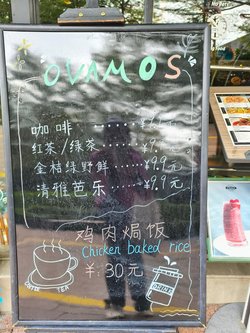 OVAMOS
咖啡
红茶/绿茶 ¥9.
金桔绿野鲜 ¥9.9元
清雅芭乐 ¥9.9元
鸡肉焗饭
Chicken baked rice
¥:30元
TEA
DRINK